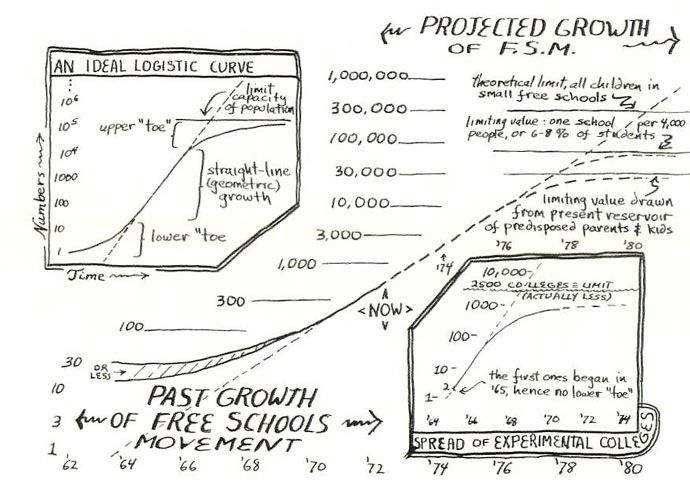 PROJECTED GROWTH
OF F.S.M.
AN IDEAL LOGISTIC CURVE
limit,
capacity
of population
upper "toe"
straight-line
(geometric)
growth
lower "toe
Numbers
Time
10⁶
10⁵
10⁴
1000
100
10
1
1,000,000
300,000
100,000
30,000
10,000
3,000
1,000
300
100
30
10
3
1
OR
LESS
theoretical limit, all children in
small free schools
limiting value: one school per 4,000
people, or 6-8% of students
limiting value drawn
from present reservoir
of predisposed parents & kids
'74
'76
'78
'80
<NOW>
PAST GROWTH
OF FREE SCHOOLS
MOVEMENT
'62
'64
'66
'68
'70
'72
'74
'76
'78
'80
10,000
2500 COLLEGES = LIMIT
(ACTUALLY LESS)
1000
100
10
2
1
the first ones began in
'65, hence no lower "toe"
'64
'66
'68
'70
'72
'74
SPREAD OF EXPERIMENTAL COLLEGES